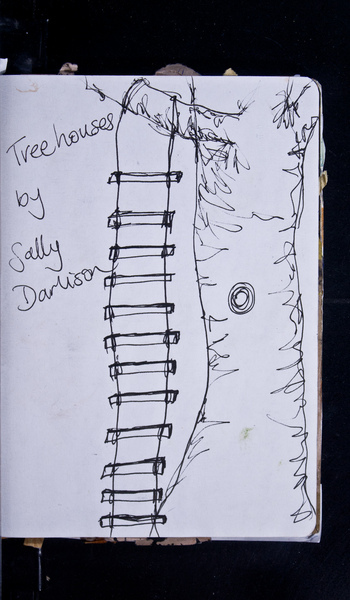 Treehouses
by
Sally
Darlison